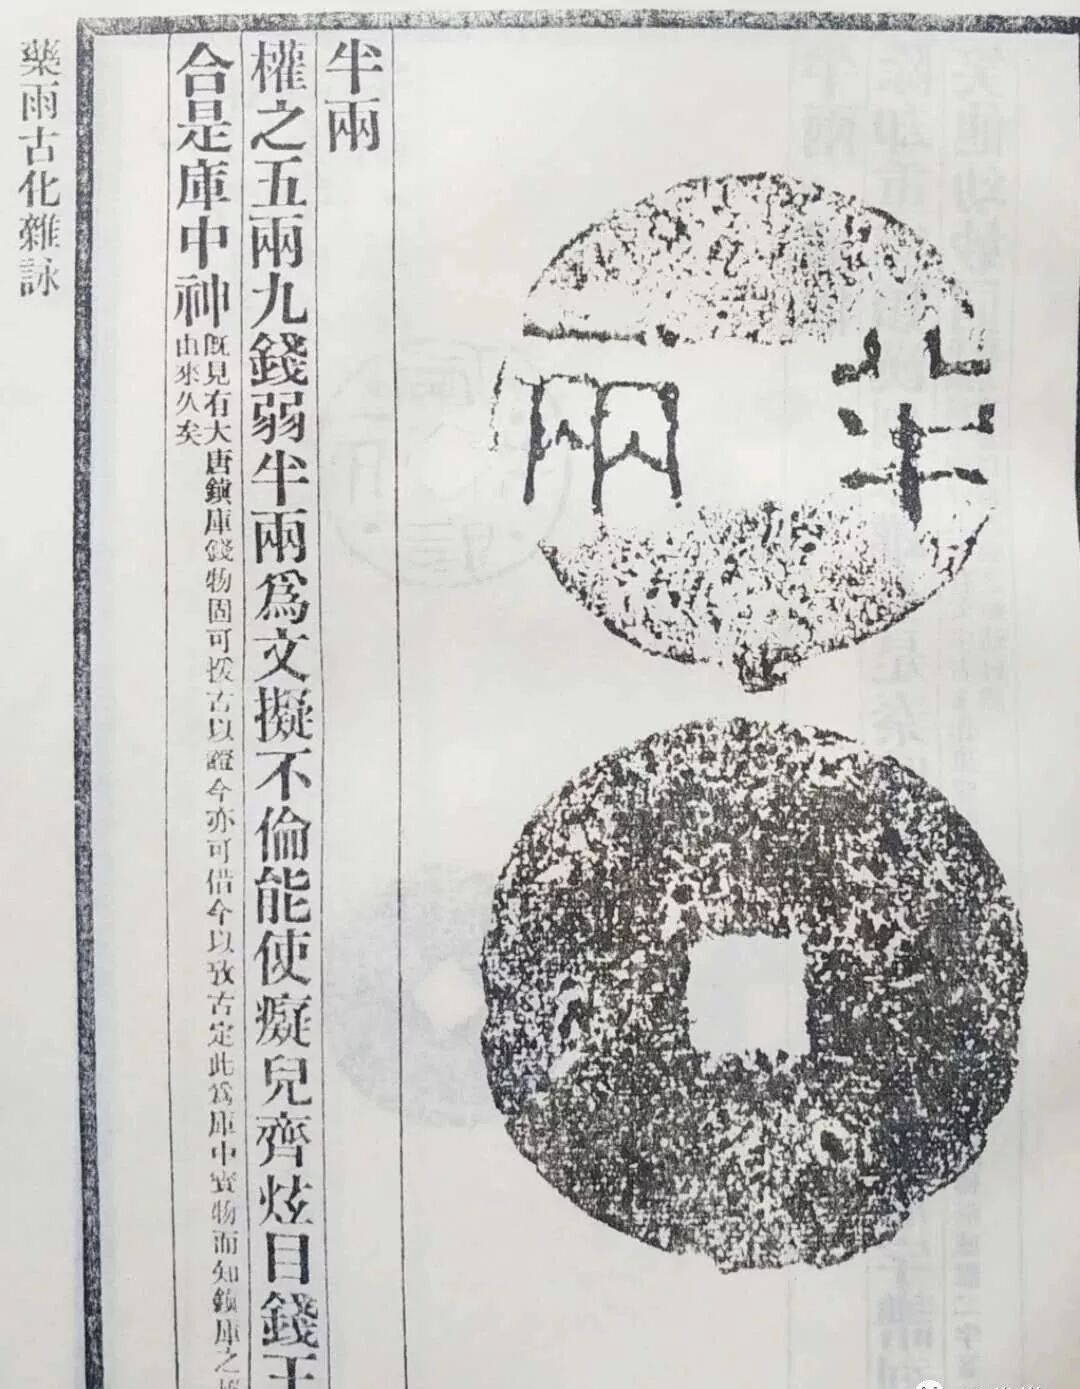 半兩
半兩
權之五兩九錢弱半兩爲文擬不倫能使癡兒齊炫目錢王
合是庫中神
既見有大唐鎮庫錢物固可援古以證今亦可借今以攷古定此爲庫中寳物而知鎮庫之
由來久矣
藥雨古化雜詠